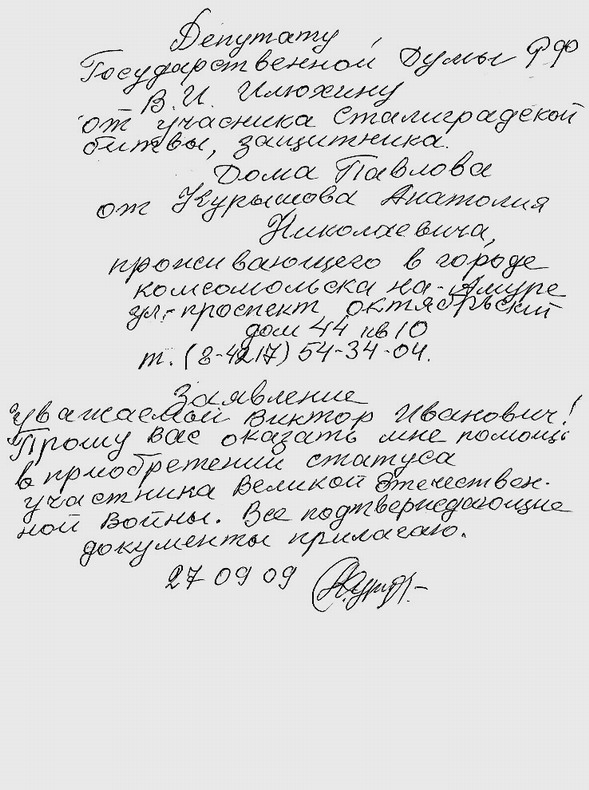 Депутату
Государственной Думы РФ
В.И. Илюхину
от учасника Сталиградской
битвы, защитника
Дома Павлова
от Курышова Анатолия
Николаевича,
проживающего в городе
комсомольска на-Амуре
ул. проспект октябрьский
дом 44 кв 10
т. (8-4217) 54-34-04.
Заявление
Уважаемой Виктор Иванович!
Прошу вас оказать мне помощь
в приобретений статуса
участника Великой Отечествен-
ной Войны. Все подтверждающие
документы прилагаю.
27 09 09